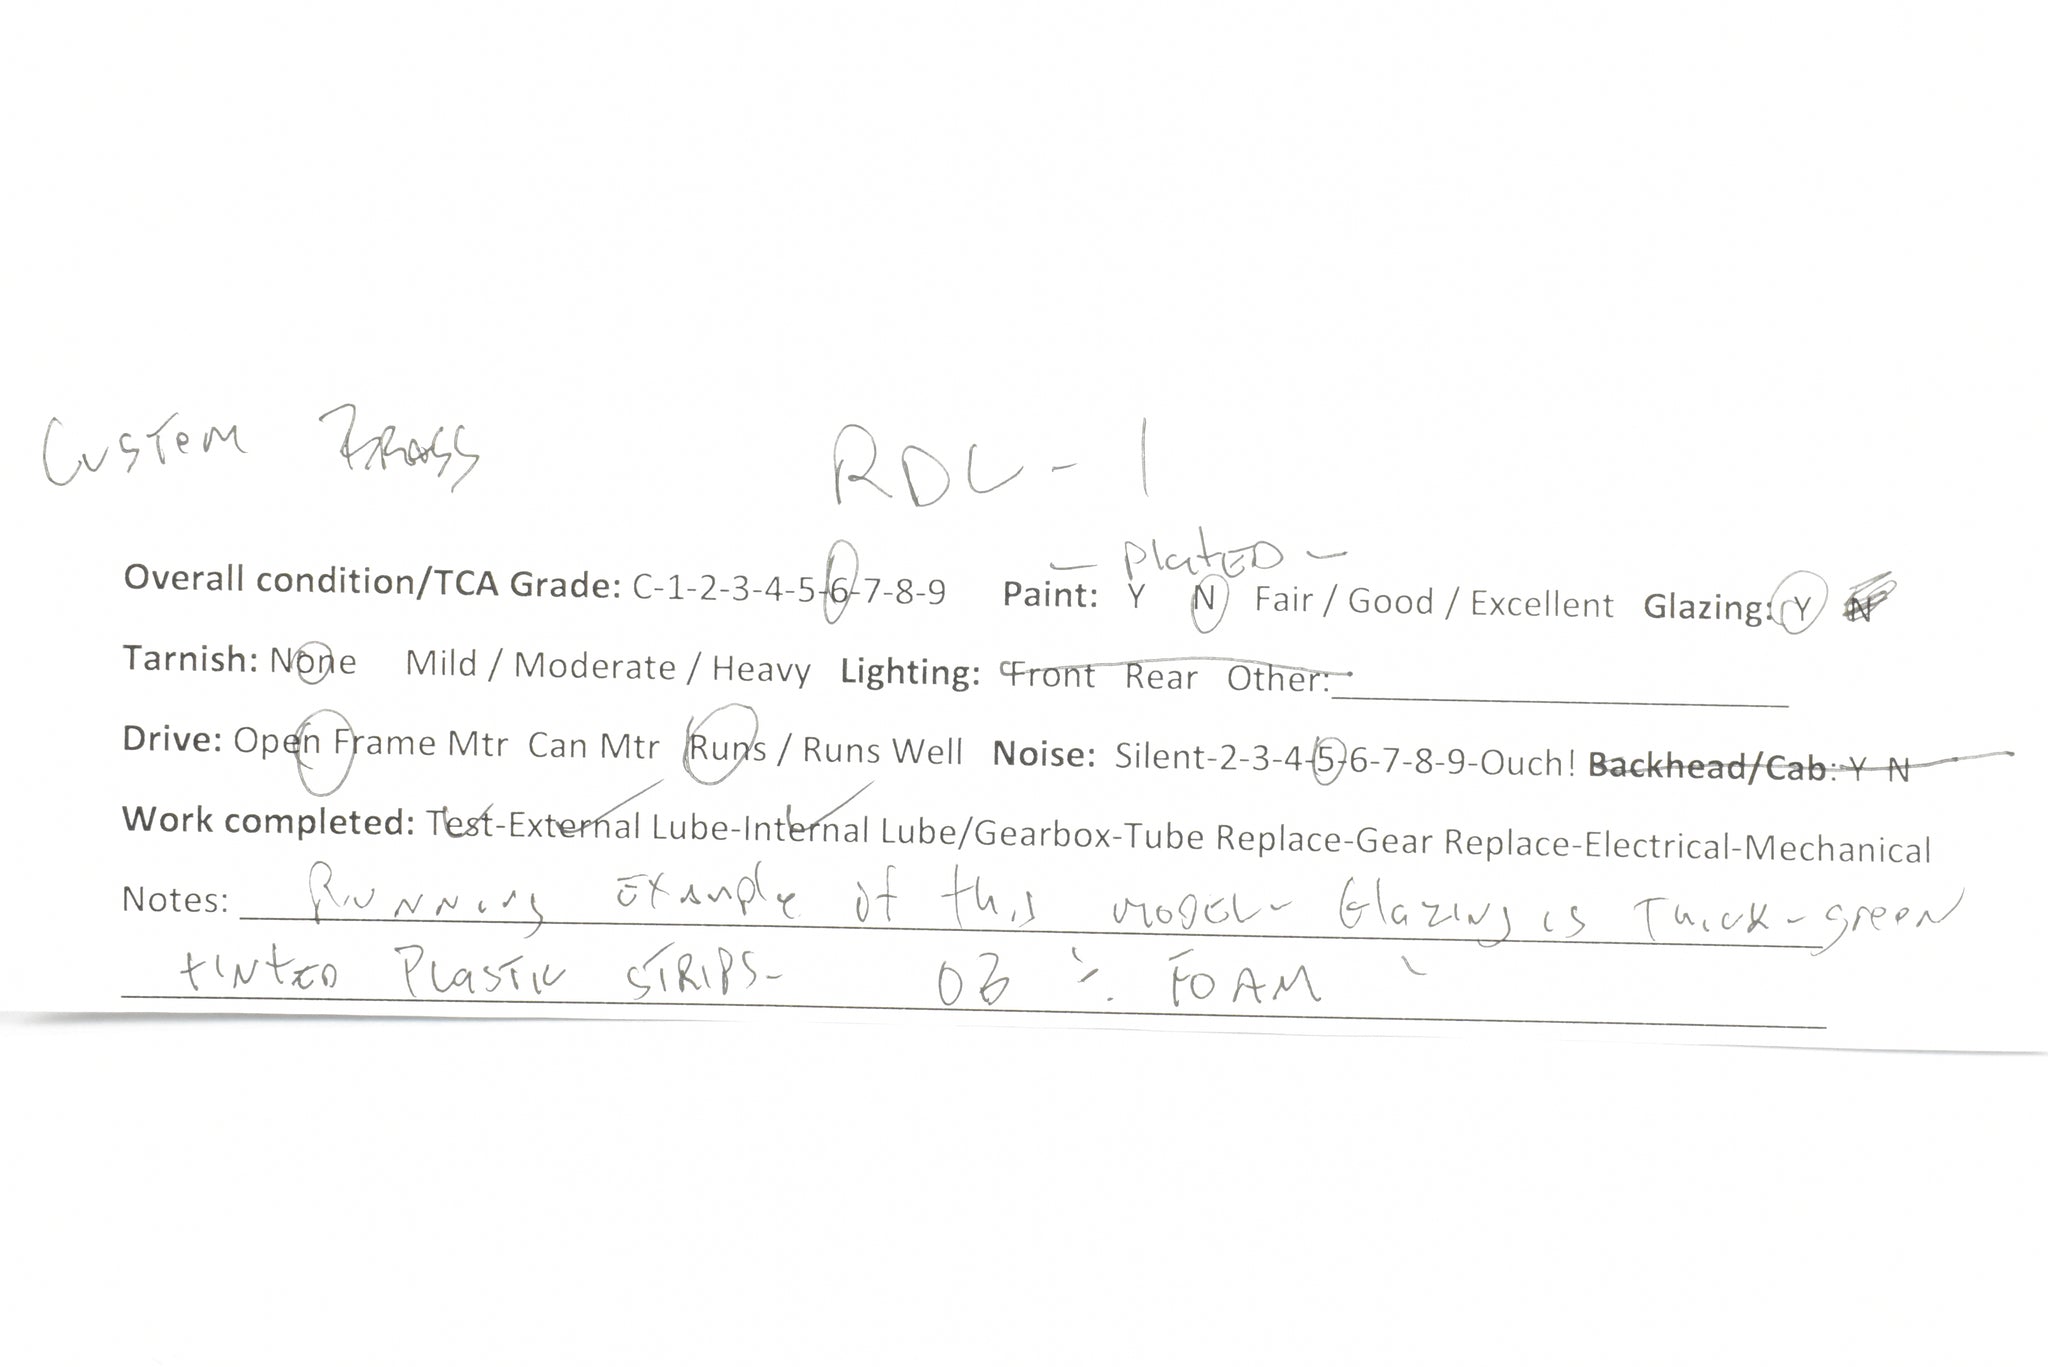 Custom Brass RDC-1
- Plated -
Overall condition/TCA Grade: C-1-2-3-4-5-6-7-8-9 Paint: Y N Fair / Good / Excellent Glazing: Y N
Tarnish: None Mild / Moderate / Heavy Lighting: Front Rear Other:
Drive: Open Frame Mtr Can Mtr Runs / Runs Well Noise: Silent-2-3-4-5-6-7-8-9-Ouch! Backhead/Cab: Y N
Work completed: Test-External Lube-Internal Lube/Gearbox-Tube Replace-Gear Replace-Electrical-Mechanical
Notes: Running example of this model - Glazing is Thick - green
tinted Plastic STRIPS - OB FOAM